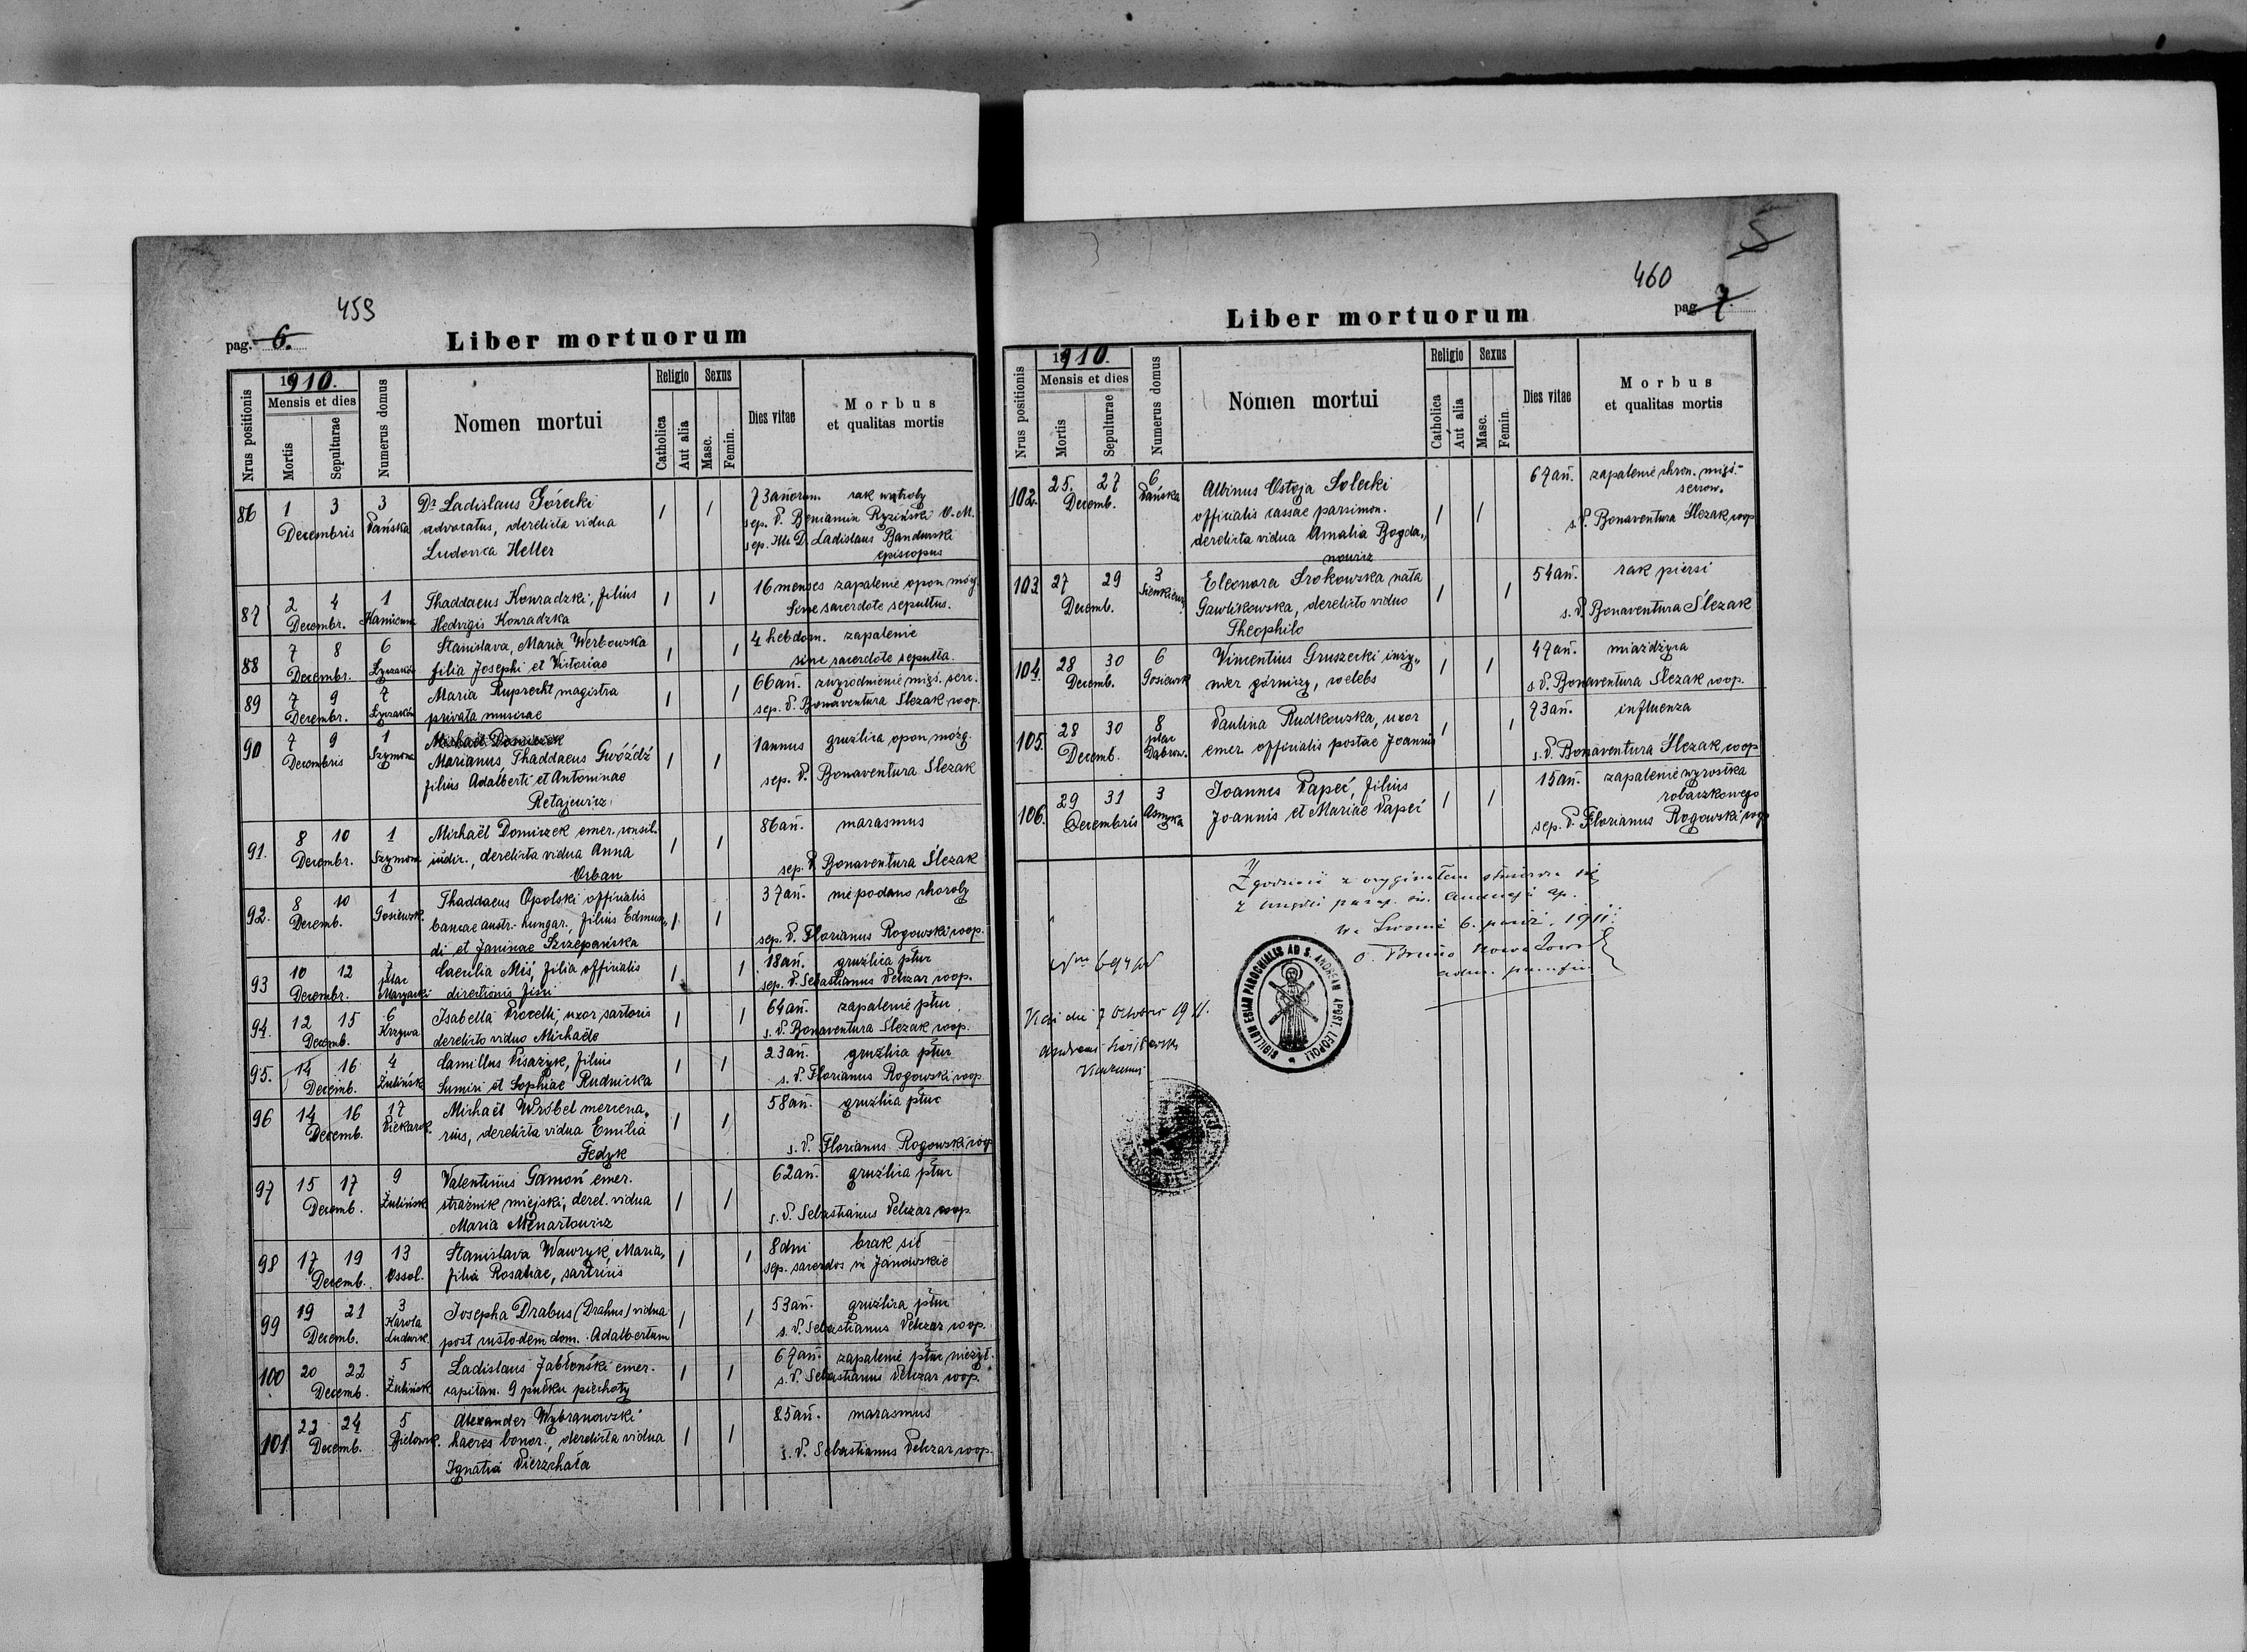 459
pag. 6.
Liber mortuorum
Nrus positionis
1910.
Mensis et dies
Mortis
Sepulturae
Numerus domus
Nomen mortui
Religio
Catholica
Aut alia
Sexus
Masc.
Femin.
Dies vitae
Morbus
et qualitas mortis
86 1 3 Decembris 3 Pańska
Dr Ladislaus Górecki
advocatus, derelicta vidua
Ludovica Heller
1 1
73 añorum. rak wątroby
sep. P. Beniamin Ryziński O. M.
sep. Ill. D. Ladislaus Bandurski
episcopus
87 2 4 Decembr. 1 Kamienna
Thaddaeus Konradzki, filius
Hedvigis Konradzka
1 1
16 menses zapalenie opon mózg.
Sine sacerdote sepultus.
88 7 8 Decembr. 6 Łyczaków
Stanislava, Maria Werbowska
filia Josephi et Victoriae
1 1
4 hebdom. zapalenie
sine sacerdote sepulta.
89 7 9 Decembr. 7 Łyczaków
Maria Ruprecht magistra
privata musicae
1 1
66 añ. zwyrodnienie mięś. serc.
sep. P. Bonaventura Ślezak coop.
90 7 9 Decembris 1 Szymona
Michaël Domiczek
Marianus, Thaddaeus Gwóźdź
filius Adalberti et Antoninae
Retajewicz
1 1
1 annus gruźlica opon mózg.
sep. P. Bonaventura Ślezak
91. 8 10 Decembr. 1 Szymona
Michaël Domiczek emer. consil.
iudic., derelicta vidua Anna
Orban
1 1
86 añ. marasmus
sep. P. Bonaventura Ślezak
92. 8 10 Decemb. 1 Gosiewsk.
Thaddaeus Opolski officialis
bancae austr.-hungar., filius Edmun„
di et Janinae Szczepańska
1 1
37 añ. nie podano choroby
sep. P. Florianus Rogowski coop.
93 10 12 Decembr. 7 plac Maryacki
Caecilia Miś, filia officialis
directionis fisci
1 1
18 añ. gruźlica płuc
sep. P. Sebastianus Pelczar coop.
94. 12 15 Decemb. 6 Krzywa
Isabella Procelli, uxor sartoris
derelicto viduo Michaële
1 1
64 añ. zapalenie płuc
s. P. Bonaventura Ślezak coop.
95. 14 16 Decemb. 4 Żulińsk.
Camillus Pisazyk, filius
Sumiri et Sophiae Rudnicka
1 1
23 añ. gruźlica płuc
s. P. Florianus Rogowski coop.
96 14 16 Decemb. 17 Piekarsk.
Michaël Wróbel mercena„
rius, derelicta vidua Emilia
Fedyk
1 1
58 añ. gruźlica płuc
s. P. Florianus Rogowski coop.
97 15 17 Decemb. 9 Żulińsk.
Valentinus Gamoń emer.
strażnik miejski, derel. vidua
Maria Menartowicz
1 1
62 añ. gruźlica płuc
s. P. Sebastianus Pelczar coop.
98 17 19 Decemb. 13 Ossol.
Stanislava Wawryk, Maria,
filia Rosaliae, sartricis
1 1
8 dni brak sił
sep. sacerdos in Janowskie
99 19 21 Decemb. 3 Karola Ludwik.
Josepha Drabus (Drahus) vidua
post custodem dom. Adalbertum
1 1
53 añ. gruźlica płuc
s. P. Sebastianus Pelczar coop.
100 20 22 Decemb. 5 Żulińsk.
Ladislaus Jabłoński emer.
capitan. 9 pułku piechoty
1 1
67 añ. zapalenie płuc nieżyt.
s. P. Sebastianus Pelczar coop.
101 22 24 Decemb. 5
Alexander Wybranowski
haeres bonor., derelicta vidua
Ignatia Pierzchała
1 1
85 añ. marasmus
s. P. Sebastianus Pelczar coop.
5
460
pag. 7.
Liber mortuorum
Nrus positionis
1910.
Mensis et dies
Mortis
Sepulturae
Numerus domus
Nomen mortui
Religio
Catholica
Aut alia
Sexus
Masc.
Femin.
Dies vitae
Morbus
et qualitas mortis
102. 25. 27 Decemb. 6 Pańska
Albinus Ostoja Solecki
officialis cassae parsimon.
derelicta vidua Amalia Bogda„
nowicz
1 1
67 añ. zapalenie chron. mięś.-
sercow.
s. P. Bonaventura Ślezak coop
103. 27 29 Decemb. 3 Sienkiewicz.
Eleonora Srokowska nata
Gawlikowska, derelicto viduo
Theophilo
1 1
54 añ. rak piersi
s. P. Bonaventura Ślezak
104. 28 30 Decemb. 6 Gosiewsk
Vincentius Gruszecki inży„
nier górniczy, coelebs
1 1
47 añ. miażdżyca
s. P. Bonaventura Ślezak coop.
105. 28 30 Decemb. 8 plac Dąbrow.
Paulina Rudkowska, uxor
emer. officialis postae Joannis
1 1
73 añ. influenza
s. P. Bonaventura Ślezak coop
106. 29 31 Decembris 3 Asnyka
Joannes Papeć, filius
Joannis et Mariae Papeć
1 1
15 añ. zapalenie wyrostka
robaczkowego
sep. P. Florianus Rogowski coop
Zgodność z oryginałem stwierdza się
z urzędu paraf. św. Andrzeja Ap.
We Lwowie 6. paźdź. 1911.
O. Bruno
SIGILLUM ECCLIAE PAROCHIALIS AD S. ANDREAM APOST. LEOPOLI
Vidi die 7 Octobris 1911.